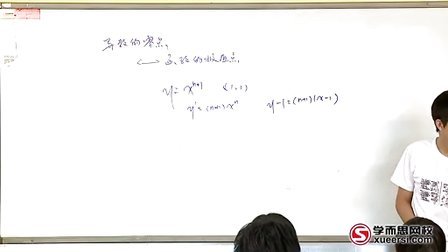 导数的零点,
←→ 函数的极值点,
y = x^{n+1} (1,1)
y' = (n+1)x^n y-1=(n+1)(x-1)
学而思网校
xueersi.com